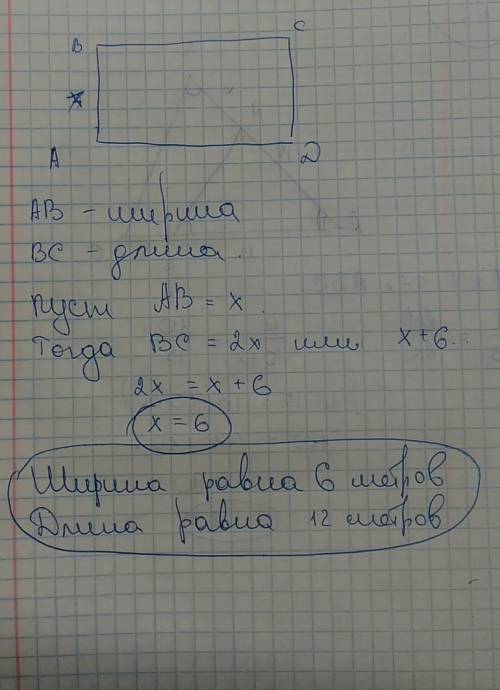 B C
A D
AB - ширина
BC - длина.
пуст AB = x.
Тогда BC = 2x или x+6..
2x = x + 6
x = 6
Ширина равна 6 метров
Длина равна 12 метров